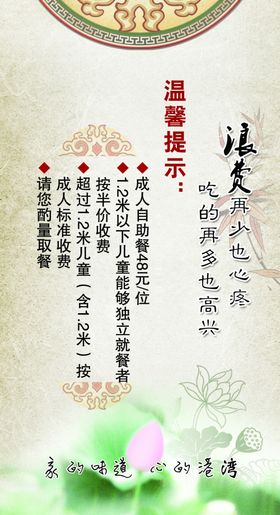 浪费再少也心疼
吃的再多也高兴
温馨提示：
◆成人自助餐48元/位
◆1.2米以下儿童能够独立就餐者
按半价收费
◆超过1.2米儿童（含1.2米）按
成人标准收费
◆请您酌量取餐
家的味道 心的港湾